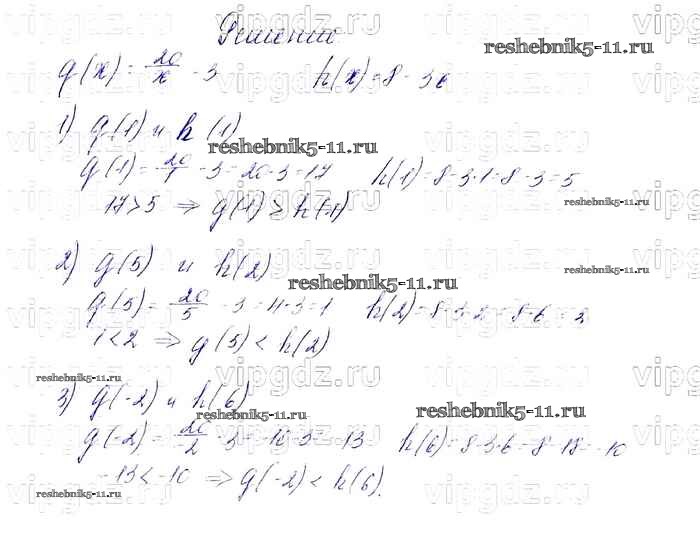 Решение
reshebnik5-11.ru
g(x) = 20/x - 3 h(x) = 8 - 3x
1) g(1) и h(1)
reshebnik5-11.ru
g(1) = 20/1 - 3 = 20 - 3 = 17 h(1) = 8 - 3·1 = 8 - 3 = 5
17 > 5 ⇒ g(1) > h(1)
reshebnik5-11.ru
2) g(5) и h(2)
reshebnik5-11.ru
reshebnik5-11.ru
g(5) = 20/5 - 3 = 4 - 3 = 1 h(2) = 8 - 3·2 = 8 - 6 = 2
1 < 2 ⇒ g(5) < h(2)
reshebnik5-11.ru
3) g(-2) и h(6)
reshebnik5-11.ru
reshebnik5-11.ru
g(-2) = 20/-2 - 3 = -10 - 3 = -13 h(6) = 8 - 3·6 = 8 - 18 = -10
-13 < -10 ⇒ g(-2) < h(6).
reshebnik5-11.ru
reshebnik5-11.ru
vipgdz.ru